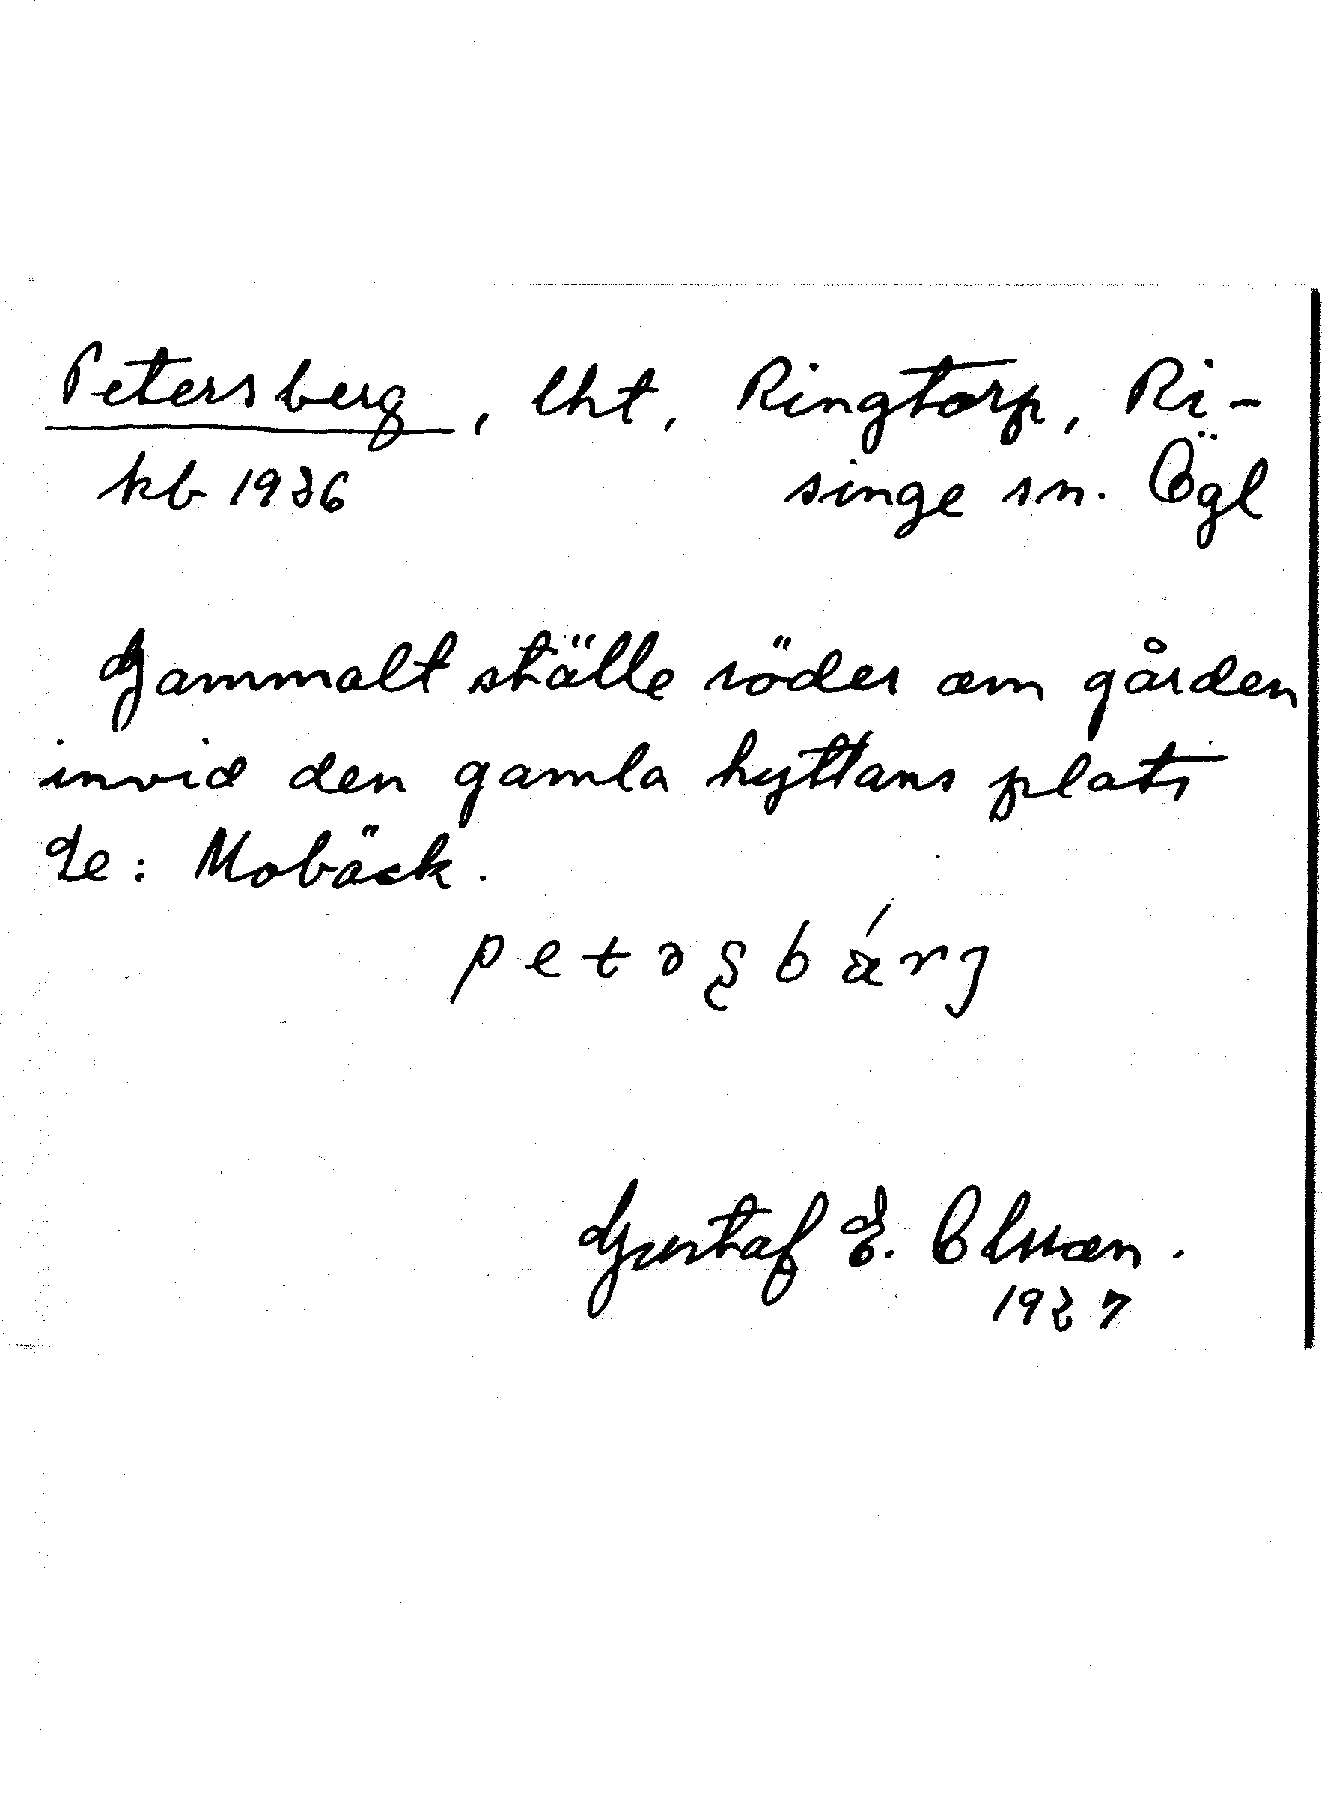 Petersberg, lht, Ringtorp, Ri-
kb 1936 singe sn. Ögl
Gammalt ställe söder om gården
invid den gamla hyttans plats
Se: Mobäck.
petəʂbárj
Gustaf E. Olsson.
1937